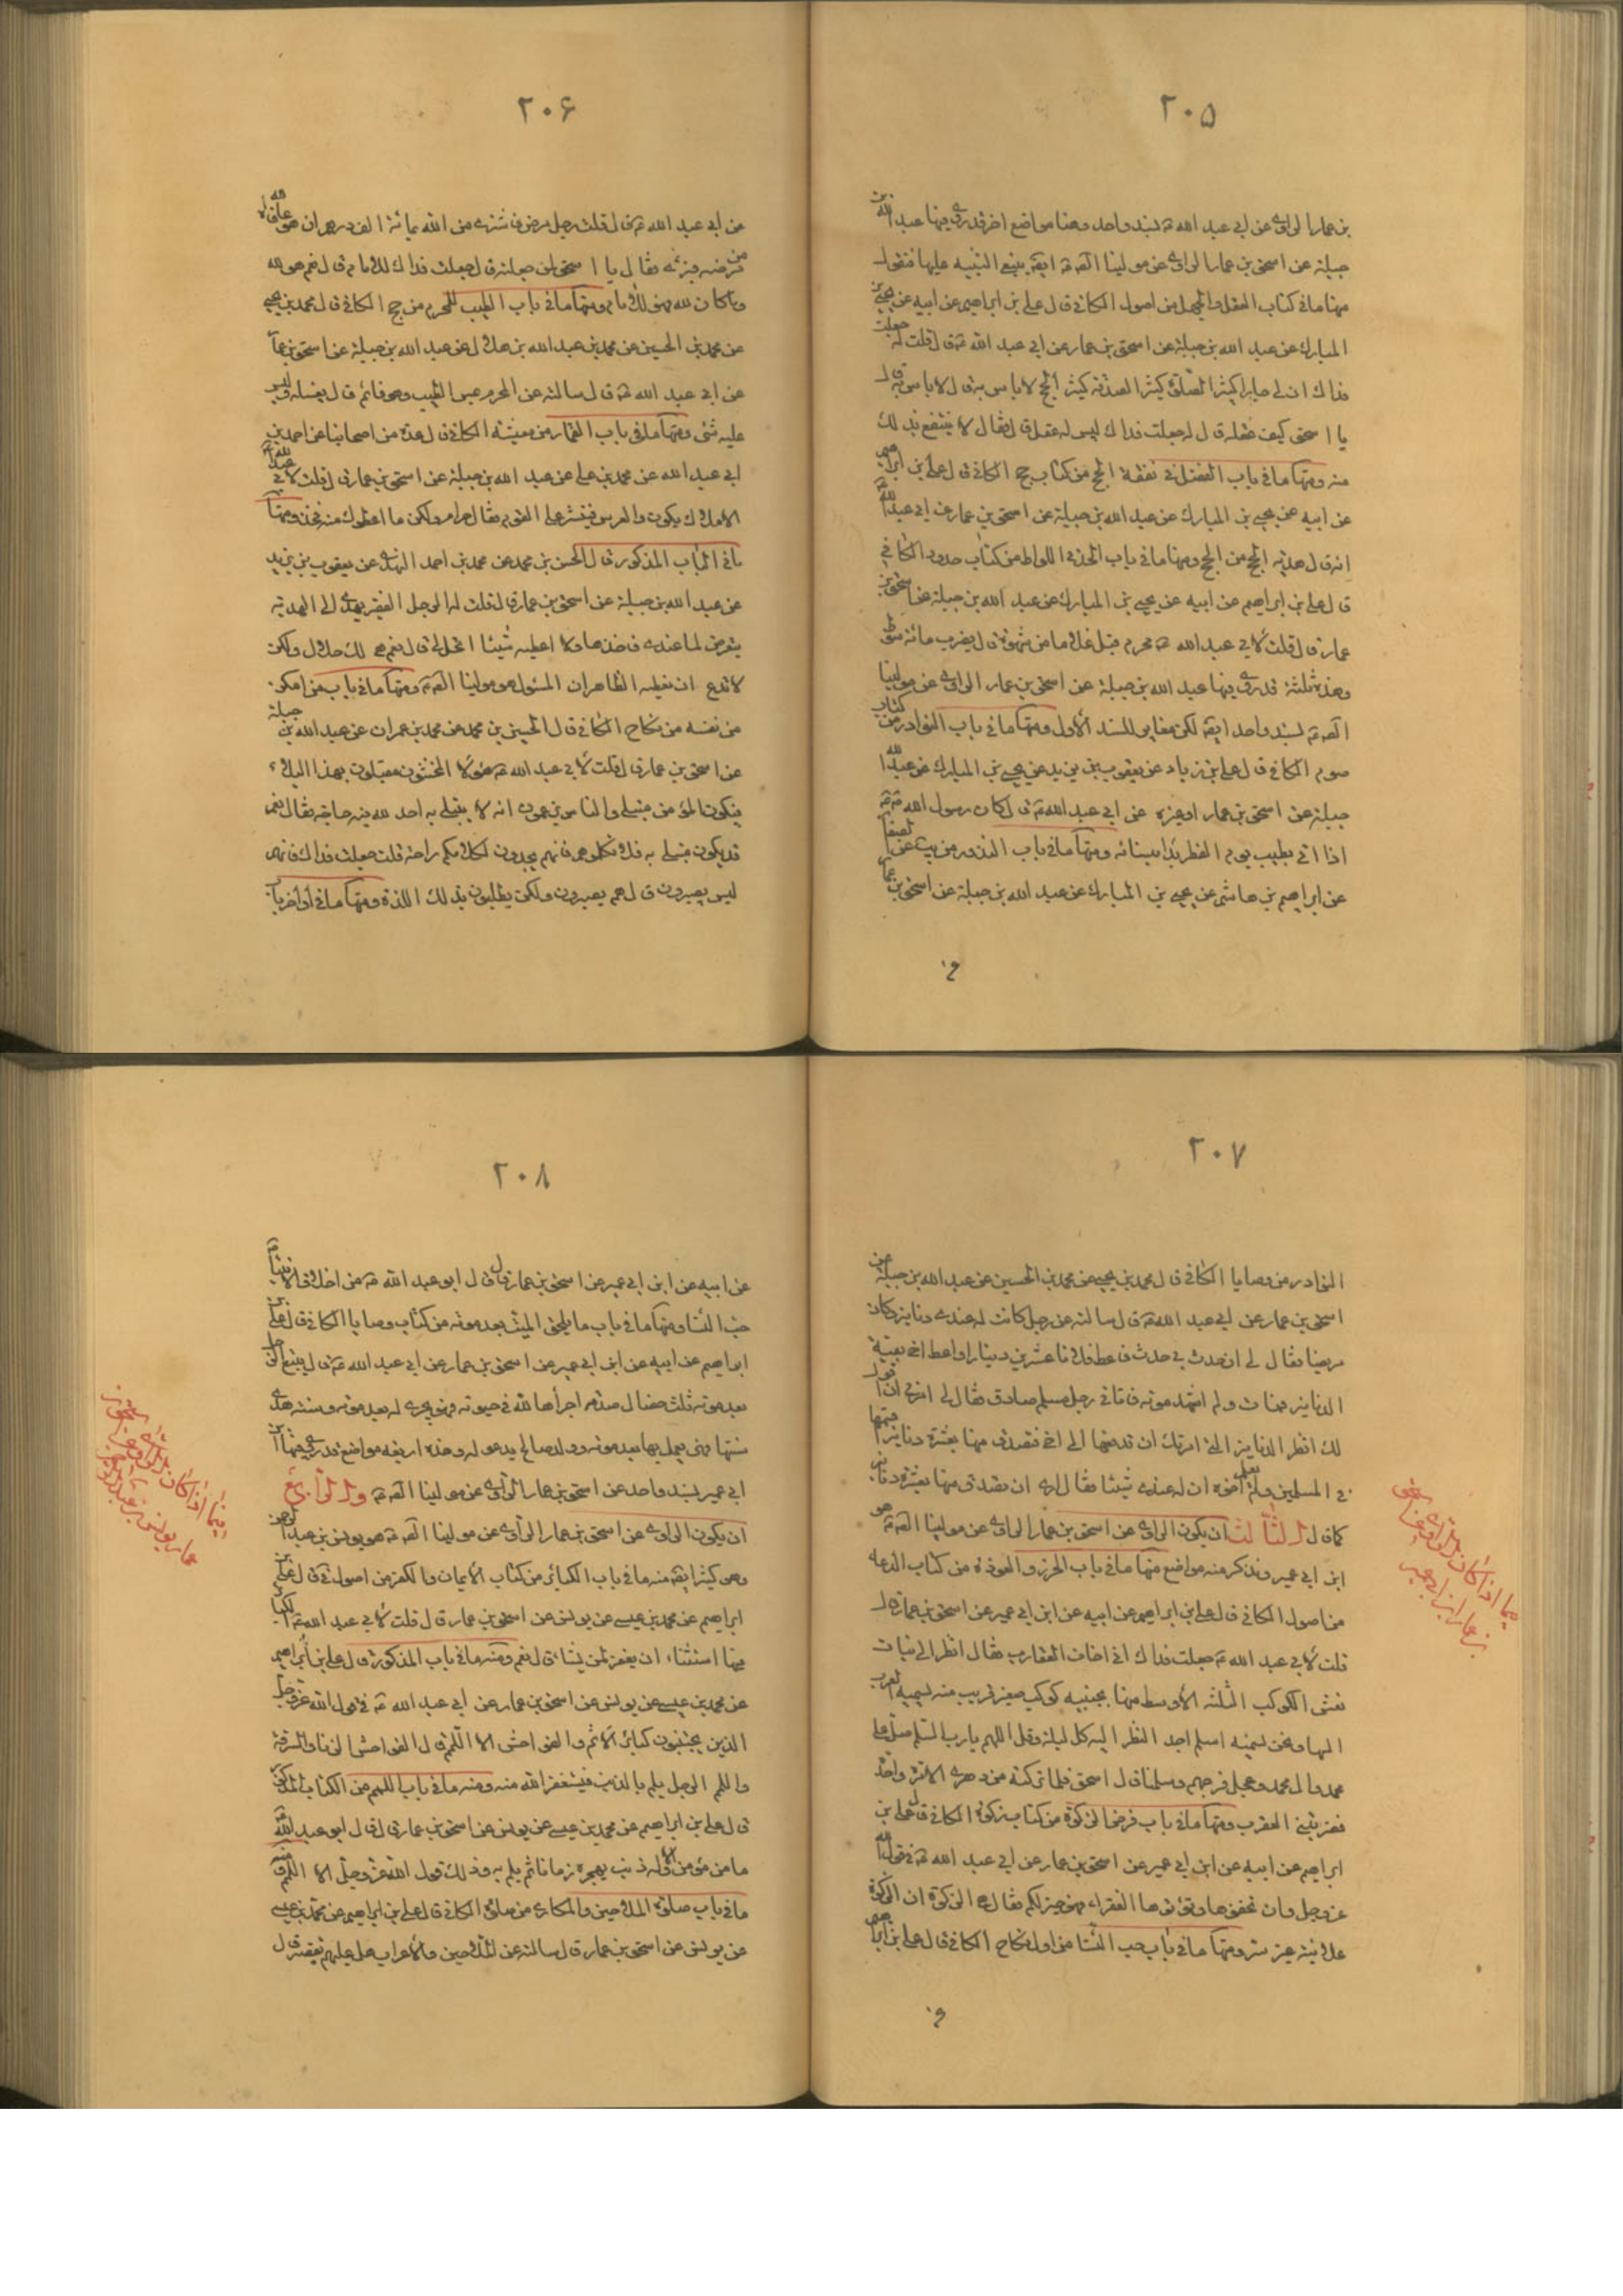 ٢٠۵
بن عمار الراوى عن ابى عبد الله ع بسند واحد وهنا مواضع اخر قد روى فيها عبد الله بن
جبلة عن اسحق بن عمار الراوى عن مولينا الصادق ع ايضا ينبغى التنبيه عليها فنقول
منها ما فى كتاب العقل والجهل من اصول الكافى قال على بن ابراهيم عن ابيه عن يحيى بن
المبارك عن عبد الله بن جبلة عن اسحق بن عمار عن ابى عبد الله ع قال قلت له جعلت
فداك ان لى جارا كثير الصلوة كثير الصدقة كثير الحج لا باس به قال
يا اسحق كيف عقله قال له جعلت فداك ليس له عقل قال فقال لا ينتفع بذلك
منه ومنها ما فى باب الفضل فى نفقة الحج من كتاب حج الكافى قال على بن ابراهيم
عن ابيه عن يحيى بن المبارك عن عبد الله بن جبلة عن اسحق بن عمار عن ابى عبد الله ع
انه قال هدية الحج من الحج ومنها ما فى باب الحد فى اللواط من كتاب حدود الكافى
قال على بن ابراهيم عن ابيه عن يحيى بن المبارك عن عبد الله بن جبلة عن اسحق بن
عمار قال قلت لابى عبد الله ع محرم قبل غلاما من شهوة قال يضرب مائة سوط
وهذه ثلثة قد روى فيها عبد الله بن جبلة عن اسحق بن عمار الراوى عن مولينا
بسند واحد ايضا لكن مغاير للسند الاول ومنها ما فى باب النوادر من كتاب
صوم الكافى قال على بن زياد عن يعقوب بن يزيد عن يحيى بن المبارك عن عبد الله بن
جبلة عن اسحق بن عمار او غيره عن ابى عبد الله ع قال كان رسول الله ص
اذا اتى بطيب يوم الفطر بدا بنسائه ومنها ما فى باب النذور
عن ابراهيم بن هاشم عن يحيى بن المبارك عن عبد الله بن جبلة عن اسحق بن عمار
٢٠۶
عن ابى عبد الله ع قال قلت رجل مرض فاشترى نفسه من الله بمائة الف درهم ان هو عافاه الله
من مرضه فبرئ فقال يا اسحق لمن جعلته قال جعلت فداك للامام قال نعم هو لله
وما كان لله فهو للامام ومنها ما فى باب الطيب للمحرم من حج الكافى قال محمد بن يحيى
عن محمد بن الحسين عن محمد بن عبد الله بن هلال عن عبد الله بن جبلة عن اسحق بن عمار
عن ابى عبد الله ع قال سالته عن المحرم يمس الطيب وهو نائم قال يغسله وليس
عليه شئ ومنها ما فى باب القمار من معيشة الكافى قال عدة من اصحابنا عن احمد بن
ابى عبد الله عن محمد بن على عن عبد الله بن جبلة عن اسحق بن عمار قال قلت لابى عبد الله ع
الاملاك يكون والعرس فينثر على القوم فقال حرام ولكن ما اعطوك منه فخذ ومنها
ما فى الباب المذكور قال الحسن بن محمد عن محمد بن احمد النهدى عن يعقوب بن يزيد
عن عبد الله بن جبلة عن اسحق بن عمار قال قلت له الرجل الفقير يهدى الى الهدية
يتعرض لما عندى فاخذها ولا اعطيه شيئا ا تحل لى قال نعم هى لك حلال ولكن
لا تدع ان تعطيه الظاهر ان المسئول هو مولينا الصادق ع ومنها ما فى باب من امكن
من نفسه من نكاح الكافى قال الحسين بن محمد عن محمد بن عمران عن عبد الله بن جبلة
عن اسحق بن عمار قال قلت لابى عبد الله ع هؤلاء المخنثون مبتلون بهذا البلاء
فيكون المؤمن مبتلى والناس يزعمون انه لا يبتلى به احد لله فيه حاجة فقال نعم
قد يكون مبتلى به فلا تكلموهم فانهم يجدون لكلامكم راحة قلت جعلت فداك فانهم
ليس يصبرون قال هم يصبرون ولكن يطلبون بذلك اللذة ومنها ما فى اواخر باب
٢٠٧
النوادر من وصايا الكافى قال محمد بن يحيى عن محمد بن الحسين عن عبد الله بن جبلة عن
اسحق بن عمار عن ابى عبد الله ع قال سالته عن رجل كانت له عندى دنانير وكان
مريضا فقال لى ان حدث بى حدث فاعط فلانا عشرين دينارا واعط اخى بقية
الدنانير فمات ولم اشهد موته فاتانى رجل مسلم صادق فقال لى انه امرنى ان اقول
لك انظر الدنانير التى امرتك ان تدفعها الى اخى فتصدق منها بعشرة دنانير اقسمها
فى المسلمين ولم يعلم اخوه ان له عندى شيئا فقال ارى ان تصدق منها بعشرة دنانير
كما قال الثالث ان يكون الراوى عن اسحق بن عمار الراوى عن مولينا الصادق ع هو
ابن ابى عمير ونذكر منه مواضع منها ما فى باب الحرز والعوذة من كتاب الدعاء
من اصول الكافى قال على بن ابراهيم عن ابيه عن ابن ابى عمير عن اسحق بن عمار قال
قلت لابى عبد الله ع جعلت فداك انى اخاف العقارب فقال انظر الى بنات
نعش الكواكب الثلثة الاوسط منها بجنبه كوكب صغير قريب منه تسميه العرب
السها ونحن نسميه اسلم احد النظر اليه كل ليلة وقل اللهم يا رب اسلم صل على
محمد وال محمد وعجل فرجهم وسلمنا قال اسحق فما تركته من دهرى الا مرة واحدة
فضربتنى العقرب ومنها ما فى باب فرض الزكوة من كتاب زكوة الكافى قال على بن
ابراهيم عن ابيه عن ابن ابى عمير عن اسحق بن عمار عن ابى عبد الله ع فى قول الله
عز وجل وان تخفوها وتؤتوها الفقراء فهو خير لكم فقال هى سوى الزكوة ان الزكوة
علانية غير سر ومنها ما فى باب حب النساء من اول نكاح الكافى قال على بن ابراهيم
٢٠٨
عن ابيه عن ابن ابى عمير عن اسحق بن عمار قال قال ابو عبد الله ع من اخلاق الانبياء
حب النساء ومنها ما فى باب ما يلحق الميت بعد موته من كتاب وصايا الكافى قال على بن
ابراهيم عن ابيه عن ابن ابى عمير عن اسحق بن عمار عن ابى عبد الله ع قال يتبع الرجل
بعد موته ثلث خصال صدقة اجراها لله فى حيوته فهى تجرى له بعد موته وسنة هدى
سنها فهى يعمل بها بعد موته وولد صالح يدعو له وهذه اربعة مواضع قد روى فيها ابن
ابى عمير بسند واحد عن اسحق بن عمار الراوى عن مولينا الصادق ع والرابع
ان يكون الراوى عن اسحق بن عمار الراوى عن مولينا الصادق ع هو يونس بن عبد الرحمن
وهو كثير ايضا منه ما فى باب الكبائر من كتاب الايمان والكفر من اصول قال على بن
ابراهيم عن محمد بن عيسى عن يونس عن اسحق بن عمار قال قلت لابى عبد الله ع الكبائر
فيها استثناء ان يغفر لمن يشاء قال نعم ومنه ما فى باب المذكور قال على بن ابراهيم
عن محمد بن عيسى عن يونس عن اسحق بن عمار عن ابى عبد الله ع فى قول الله عز وجل
الذين يجتنبون كبائر الاثم والفواحش الا اللمم قال الفواحش الزنا والسرقة
واللمم الرجل يلم بالذنب فيستغفر الله منه ومنه ما فى باب اللمم من الكتاب المذكور
قال على بن ابراهيم عن محمد بن عيسى عن يونس عن اسحق بن عمار قال قال ابو عبد الله ع
ما من مؤمن الا وله ذنب يهجره زمانا ثم يلم به وذلك قول الله عز وجل الا اللمم ومنه
ما فى باب صلوة الملاحين والمكارى من صلوة الكافى قال على بن ابراهيم عن محمد بن عيسى
عن يونس عن اسحق بن عمار قال سالته عن الملاحين والاعراب هل عليهم تقصير قال